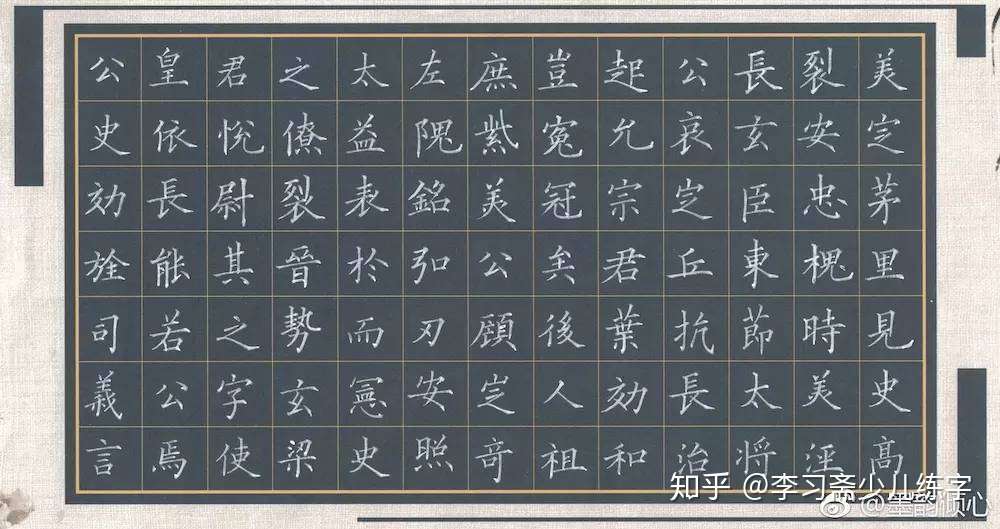 公皇君之太左庶豈起公長裂美
史依悅僚益隗紫寃允哀玄安定
効長尉裂表銘美冠宗定臣忠茅
旌能其晉於弘公矣君丘東槐里
司若之勢而刃顧後葉抗節時見
義公字玄憲安定人効長太美史
言焉使梁史照奇祖和治將涇高
知乎 @李习斋少儿练字
@墨韵倾心